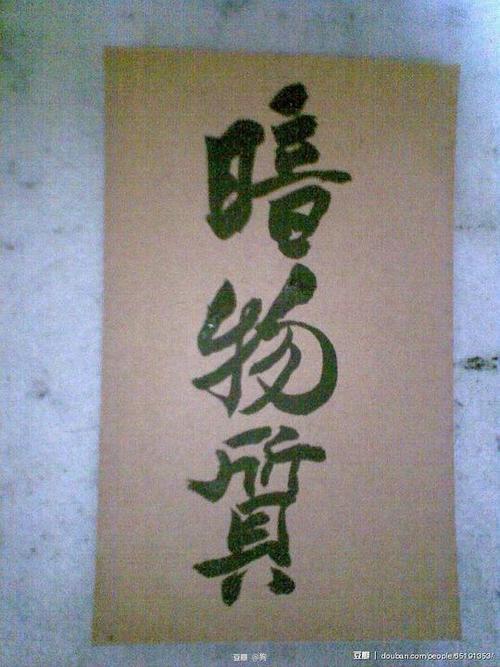 暗物質
豆瓣 @狗
豆瓣 douban.com/people/65191353/